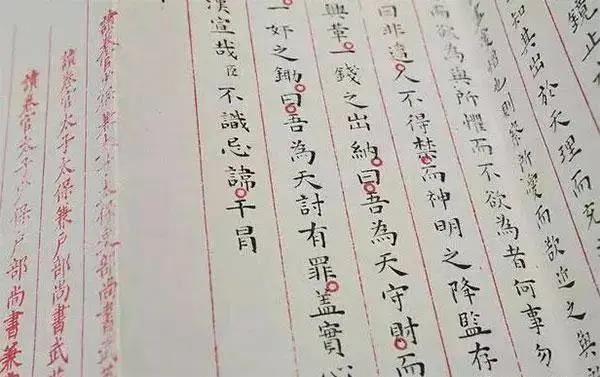 鏡止
知其出於天理而充
也則察所愛而欲近之與
而欲為與所懼而不欲為者何事勿
曰非遺人不得禁而神明之降監存
與革一錢之出納曰吾為天守財而
一奸之鋤曰吾為天討有罪蓋實心
漢宣哉臣不識忌諱干冒
讀卷官少保兼太子太保吏部尚書武英
讀卷官太子太保兼戶部尚書武英
讀卷官太子少保戶部尚書兼